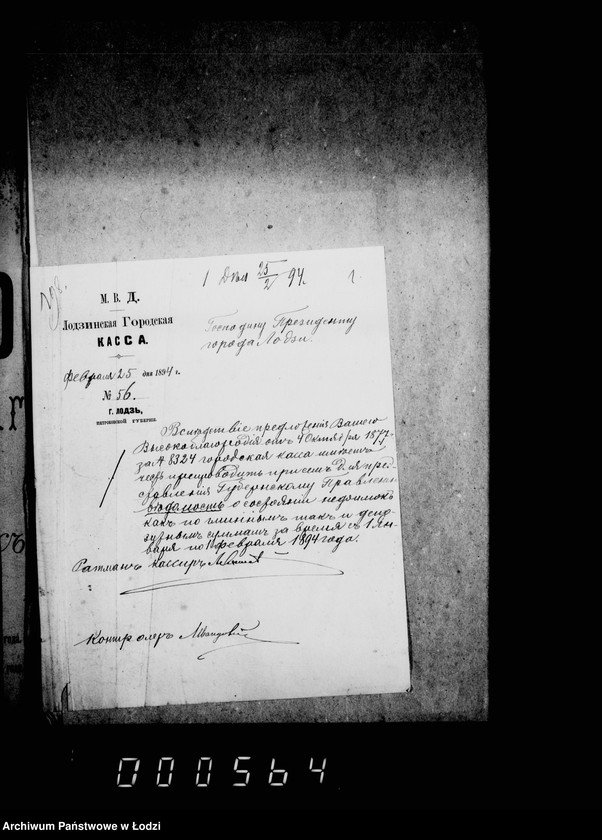 1 Дѣл 25/2 94 г.
М. В. Д.
Лодзинская Городская
КАССА.
Февраля 25 дня 1894 г.
№ 56.
Г. ЛОДЗЬ,
ПЕТРОКОВСКОЙ ГУБЕРНІИ.
Господину Президенту
города Лодзи.
Вслѣдствіе предложенія Вашего
Высокоблагородія отъ 4 Октября 1877
за № 8324 городская касса имѣетъ
честь препроводить при семъ для пред-
ставленія Губернскому Правленію
вѣдомость о состояніи недоимокъ
какъ по
такъ и депо-
зутнымъ суммамъ за время съ 1 Ян-
варя по Февраля 1894 года.
Ратманъ Кассиръ
Контролеръ
000564
Archiwum Państwowe w Łodzi